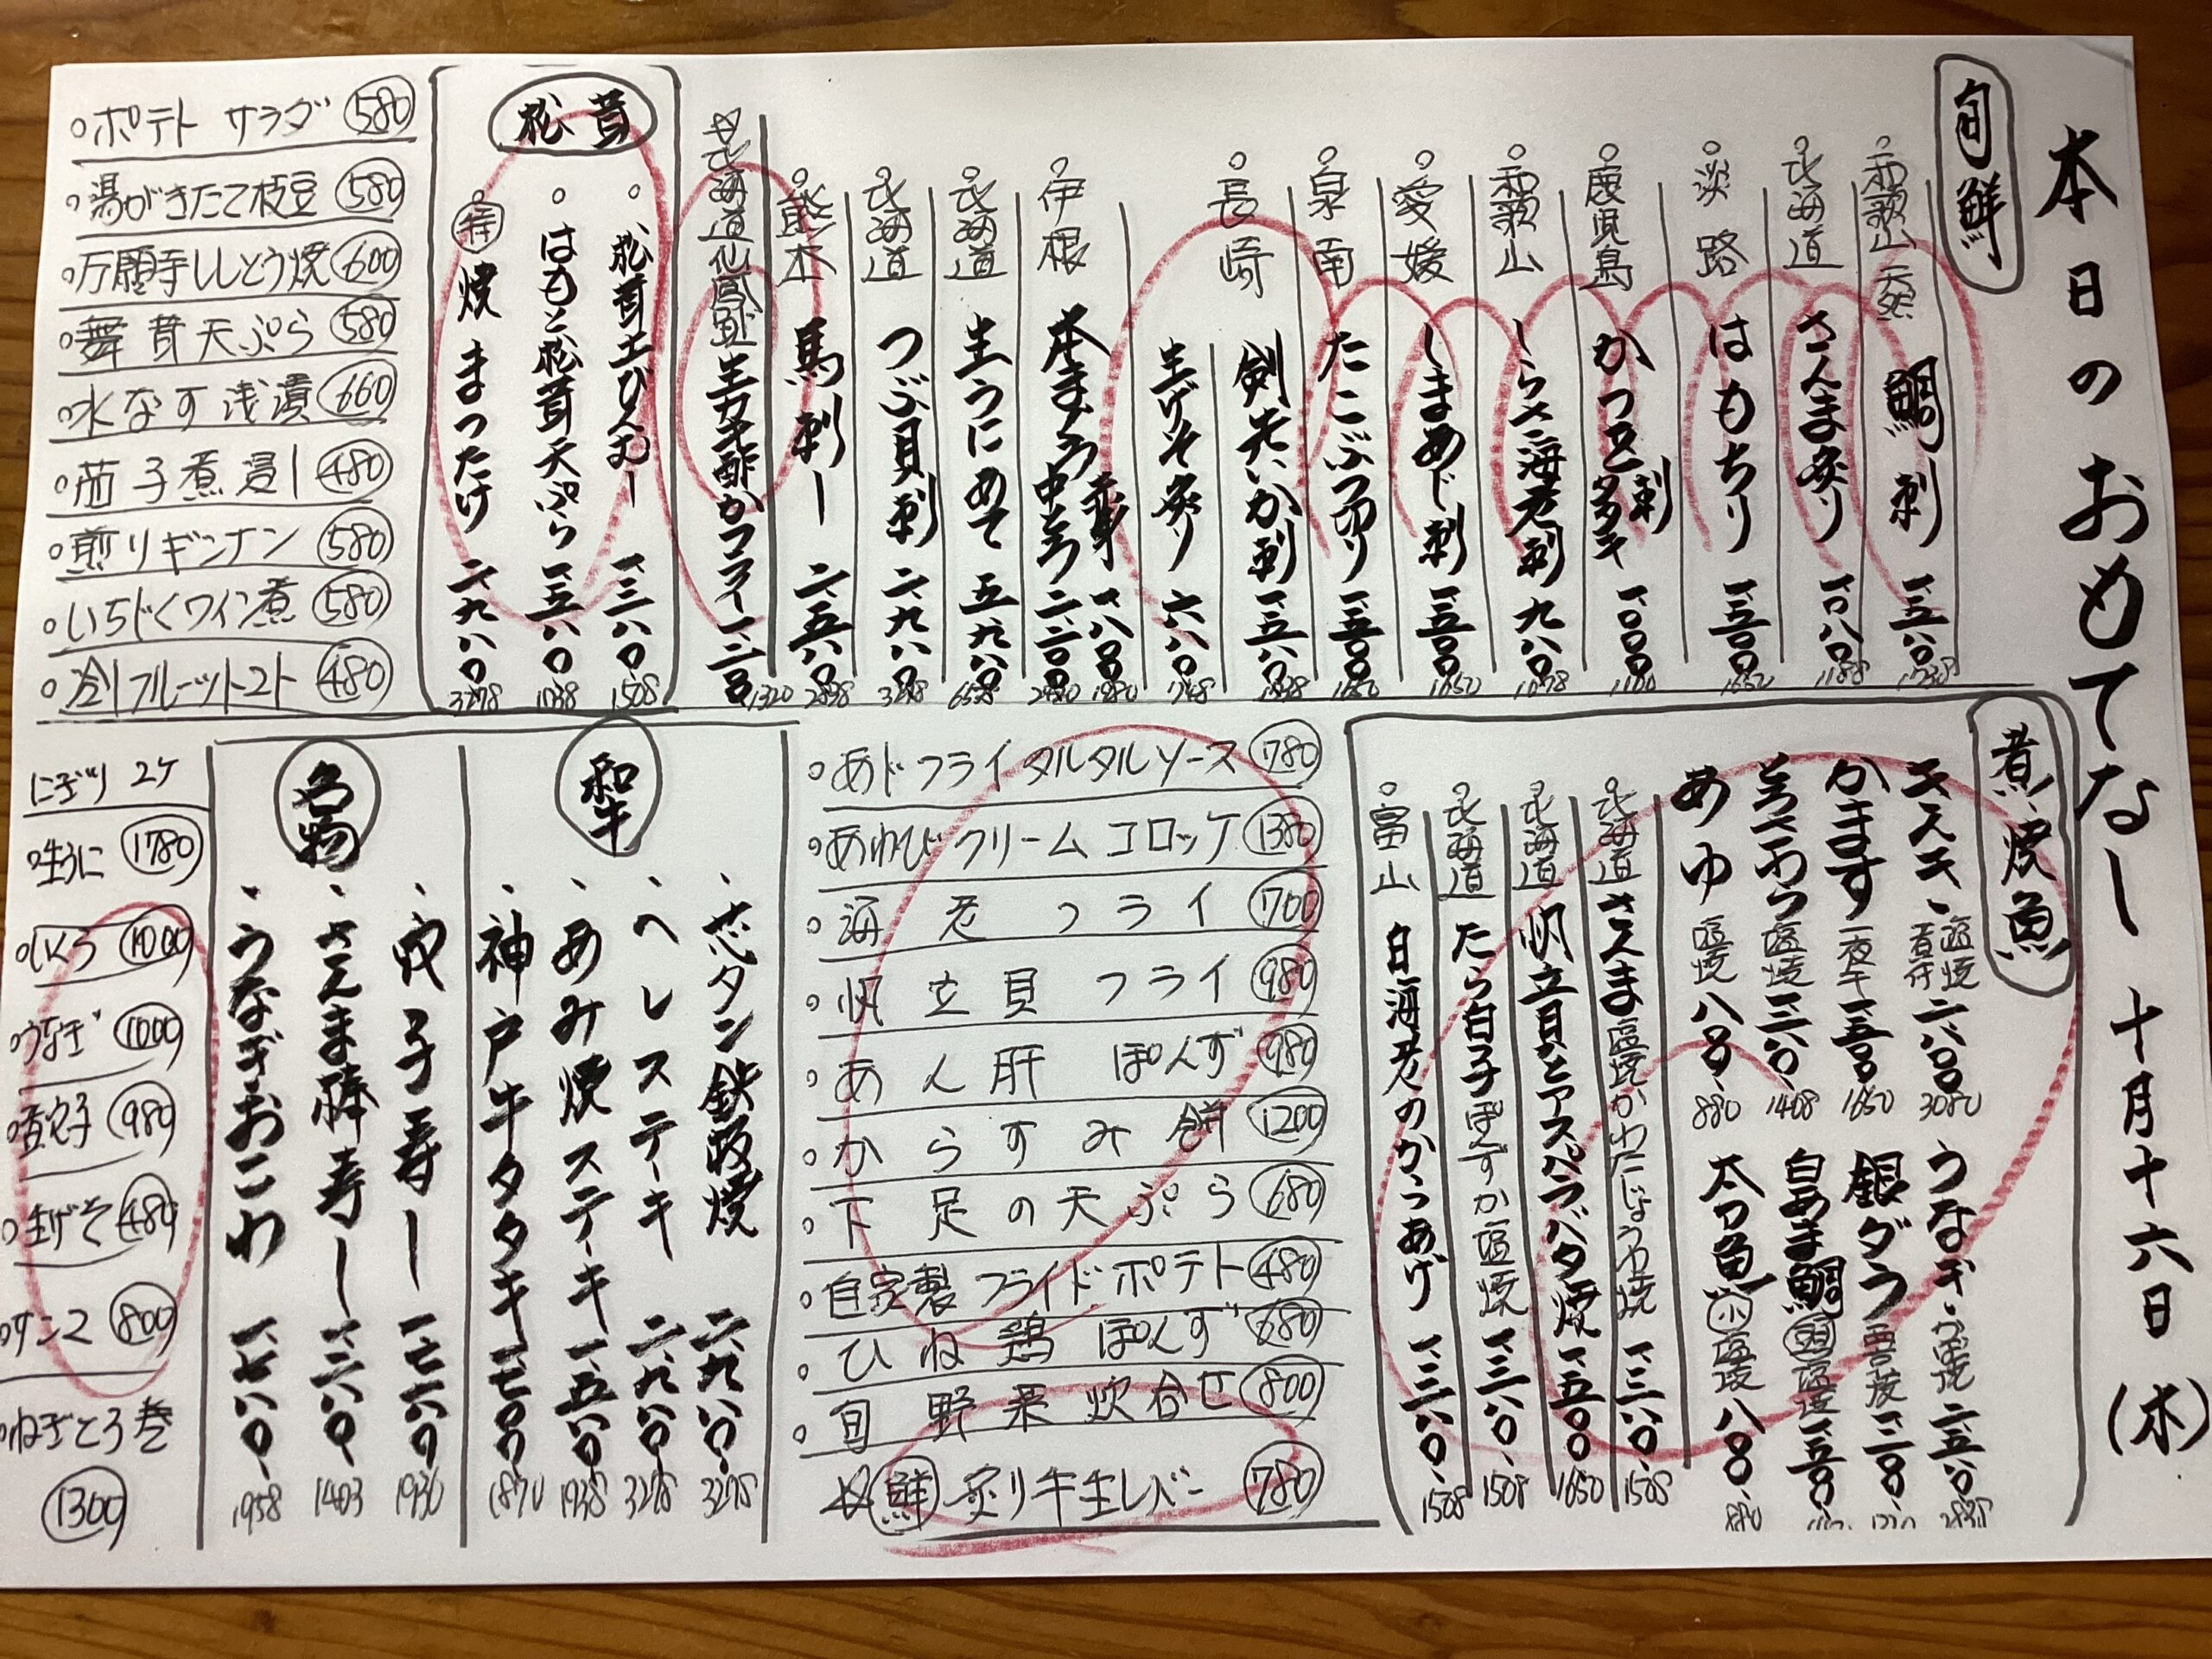 本日のおもてなし 十月十六日(木)
旬鮮
和歌山 天然 鯛刺 一、五八〇 1738
北海道 さんま炙り 一、〇八〇 1188
淡路 はもちり 一、五〇〇 1650
鹿児島 かつを刺 タタキ 一、〇〇〇 1100
和歌山 しらさ海老刺 九八〇 1078
愛媛 しまあじ刺 一、五〇〇 1650
泉南 たこぶつ切り 一、五〇〇 1650
長崎 剣先いか刺 一、五八〇 1738
生げそ炙り 六八〇 748
伊根 本まぐろ 赤身 一、八〇〇 1980
中とろ 二、二〇〇 2420
北海道 生うにめて 五、九八〇 6578
北海道 つぶ貝刺 二、九八〇 3278
熊本 馬刺し 二、五八〇 2838
☆北海道仙鳳趾 生カキ酢かフライ 一、二〇〇 1320
松茸
松茸土びんむし 一、三八〇 1508
はもと松茸天ぷら 一、五八〇
特 焼まつたけ 二、九八〇 3278
ポテトサラダ 580
湯がきたて枝豆 580
万願寺ししとう焼 600
舞茸天ぷら 580
水なす浅漬 660
茄子煮浸し 480
煎りギンナン 580
いちじくワイン煮 580
冷しフルーツトマト 480
煮、焼魚
キンキ、塩焼 煮付 二、八〇〇 3080
かます 一夜干 一、五〇〇 1650
とろさわら 塩焼 一、二八〇 1408
あゆ 塩焼 八〇〇、 880
うなぎ、かば焼 二、五八〇 2838
銀ダラ 西京焼
白あま鯛 塩焼 一、五〇〇
太刀魚 小 塩焼 八〇〇、 880
北海道 さんま 塩焼かわたじょうゆ焼 一、三八〇、 1508
北海道 帆立貝とアスパラバタ焼 一、五〇〇 1650
北海道 たら白子 ぽんずか塩焼 一、三八〇、 1508
富山 白海老のからあげ 一、三八〇、 1508
あじフライタルタルソース 780
あわびクリームコロッケ 1380
海老フライ 700
帆立貝フライ 980
あん肝ぽんず 980
からすみ餅 1200
下足の天ぷら 680
自家製フライドポテト 480
ひね鶏ぽんず 680
旬野菜炊合せ 800
☆鮮 炙り牛生レバー 780
和牛
芯タン鉄板焼 二、九八〇 3278
ヘレステーキ 二、九八〇 3278
あみ焼ステーキ 一、五八〇 1738
神戸牛タタキ 一、七〇〇、 1870
名物
穴子寿し 一、七六〇 1936
さんま棒寿し 一、二八〇、
うなぎおこわ 一、七八〇、 1958
にぎり2ヶ
生うに 1780
とろ 1000
うなぎ 1000
煮穴子 980
生げそ 480
サンマ 800
ねぎとろ巻 1300